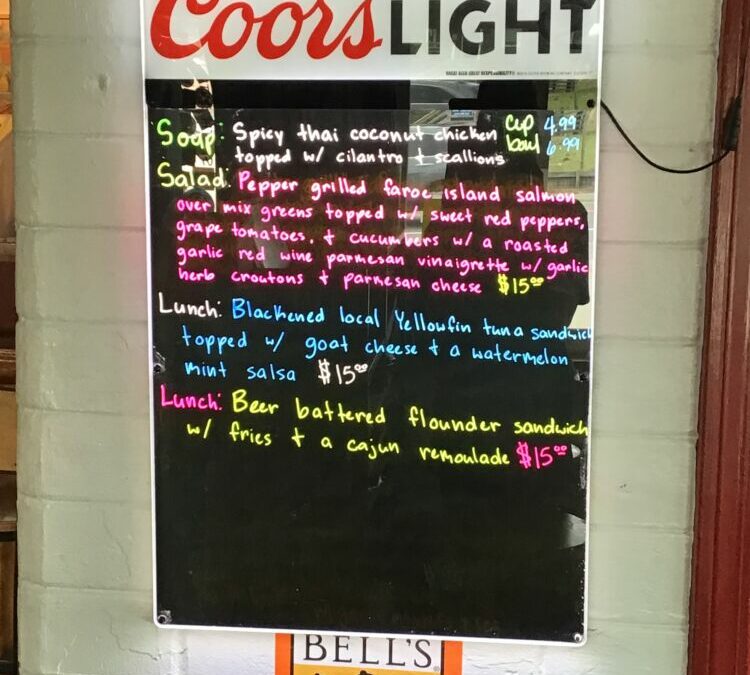 Coors LIGHT
Soup: Spicy thai coconut chicken cup 4.99
topped w/ cilantro + scallions bowl 6.99
Salad: Pepper grilled faroe island salmon
over mix greens topped w/ sweet red peppers,
grape tomatoes, + cucumbers w/ a roasted
garlic red wine parmesan vinaigrette w/ garlic
herb croutons + parmesan cheese $15⁰⁰
Lunch: Blackened local Yellowfin tuna sandwich
topped w/ goat cheese + a watermelon
mint salsa $15⁰⁰
Lunch: Beer battered flounder sandwich
w/ fries + a cajun remoulade $15⁰⁰
BELL'S